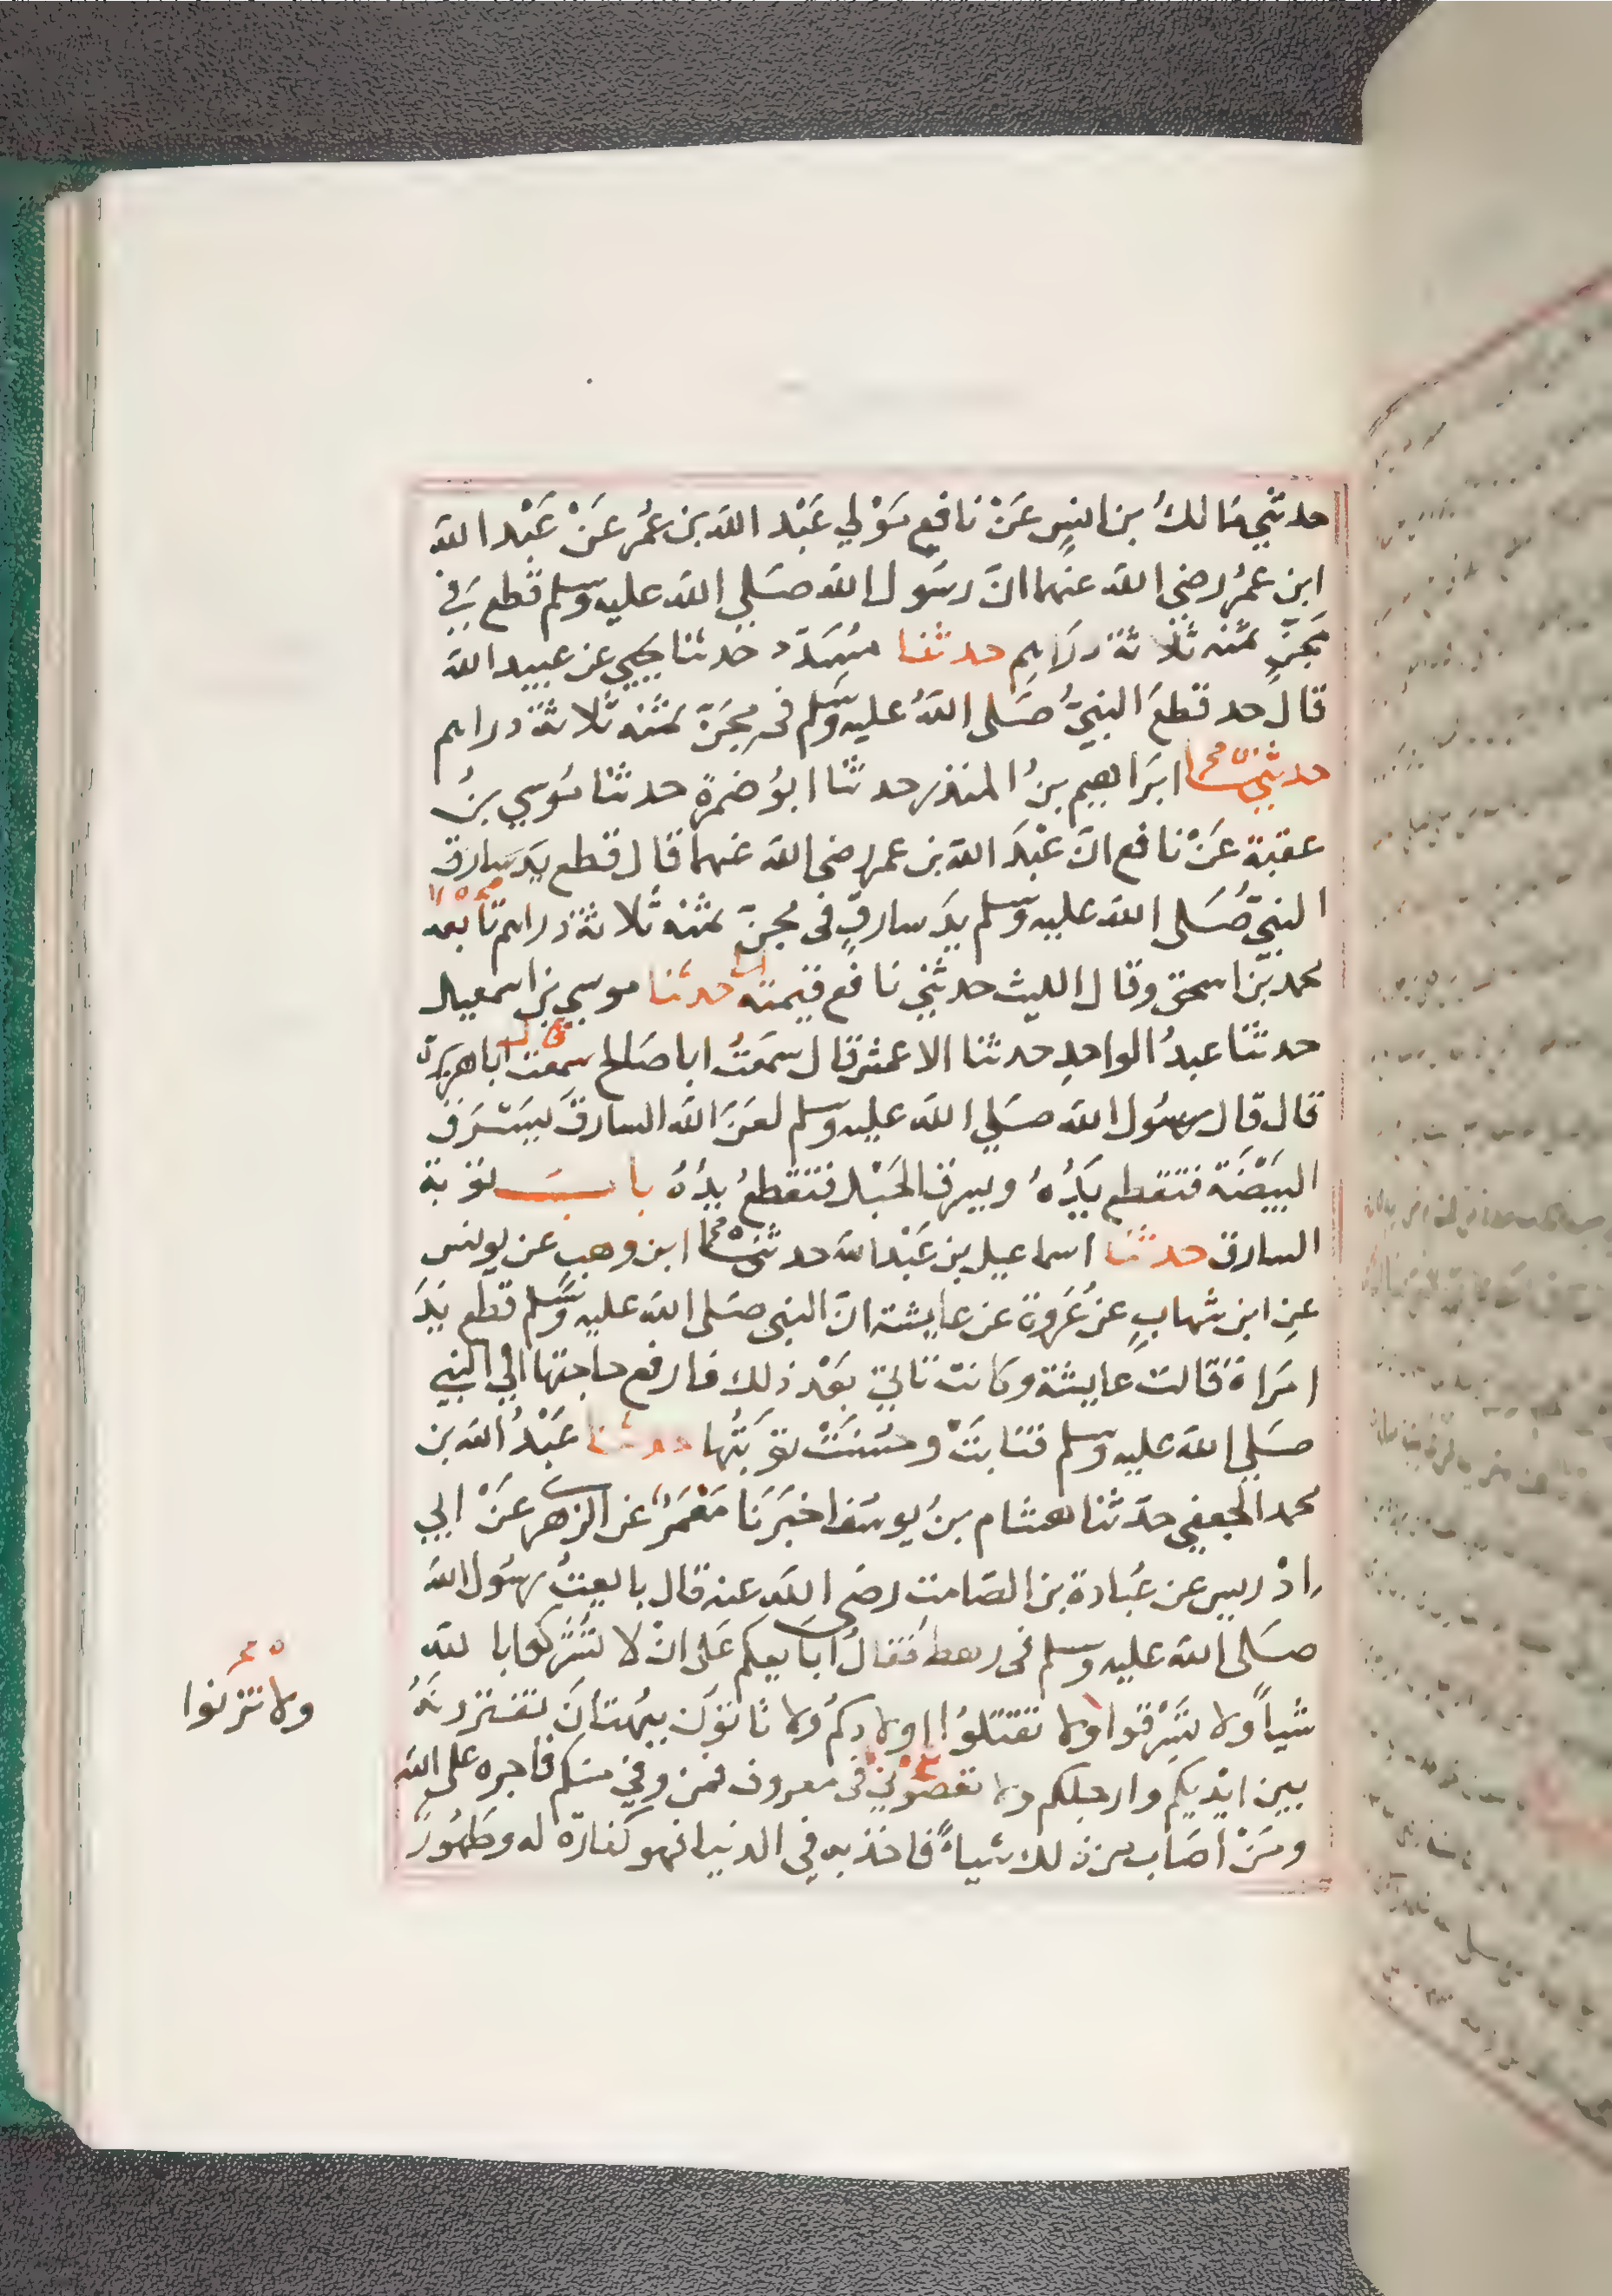 حدثني مَالكُ بن انسٍ عَنْ نافع مَوْلي عَبْد الله بن عمُر عَنْ عَبْد الله
ابن عمُر رضي الله عنهما انَّ رسَول الله صَلي الله عليه وسلم قطع في
مجَنٍّ ثمنه ثلاثة دَراهم حدثنا مُسَدّد حدثنا يحيي عن عبيد الله
قال حد قطعَ النبيُّ صَلى اللهُ عليه وسَلم في مجَنّ ثمَنُه ثلاثة دراهم
حدثني ابرَاهيم بنُ المنذر حدثنا ابوُ ضمرةَ حدثنا مُوسي بنُ
عقبة عَنْ نافع انّ عبْدَ الله بن عمر رضى الله عنهما قال قطع يدَ سارق
النبيّ صَلى الله عليه وسلم يدَ سارقٍ في مجنّ ثمنُه ثلاثة دراهم تابعه
محمد بنُ اسحق وقال الليث حدثني نافع قيمته حدثنا موسي بن اسمعيل
حدثنا عبدُ الواحدِ حدثنا الاعمش قال سمَعتُ ابا صَالح سمعت ابا هريرة
قال قال رسُول الله صَلي الله عليه وسلم لعَنَ الله السارقَ يَسَرق
البَيْضَة فتقطع يَدُهُ ويسرق الحَبْلَ فتقطعُ يدُهُ باب توَبة
السارق حدثنا اسماعيل بن عَبْد الله حدثني ابن وهبٍ عن يونس
عنِ ابن شهابٍ عنْ عُروة عن عايشة انّ النبي صَلى الله عليه وسَلم قطع يَدَ
امرَاة قالت عايشة وكانت تاتي بَعْد ذلك فارفع حاجتها الي النبي
صَلي الله عليه وسلم فتابَتْ وحَسُنَتْ توَبتُها حدثنا عَبْدُ الله بن
محمد الجعفي حدّثنا هشام بنُ يوسف اخبَرَنا مَعْمَرُ عن الزهري عَنْ ابي
ادْريس عن عُبادة بن الصَامت رضى الله عنه قال بايعتُ رسُول الله
صَلى الله عليه وسلم في رهط فقالَ اُبايعكم عَلى انْ لا تشركوا بالله
شيأً ولا تَسْرقوا ولا تقتلوُا اولادكم ولا تاتوَن ببُهتانَ تفترونَهُ
بين ايْديكم وارجلكم ولا تعصوُني في معروف فمن وفي منكم فاجره على الله
ومَنْ اصَاب من ذلك شياً فاخذ به في الدنيا فهو كفارة له وطَهُورٌ
ولا تزنوا